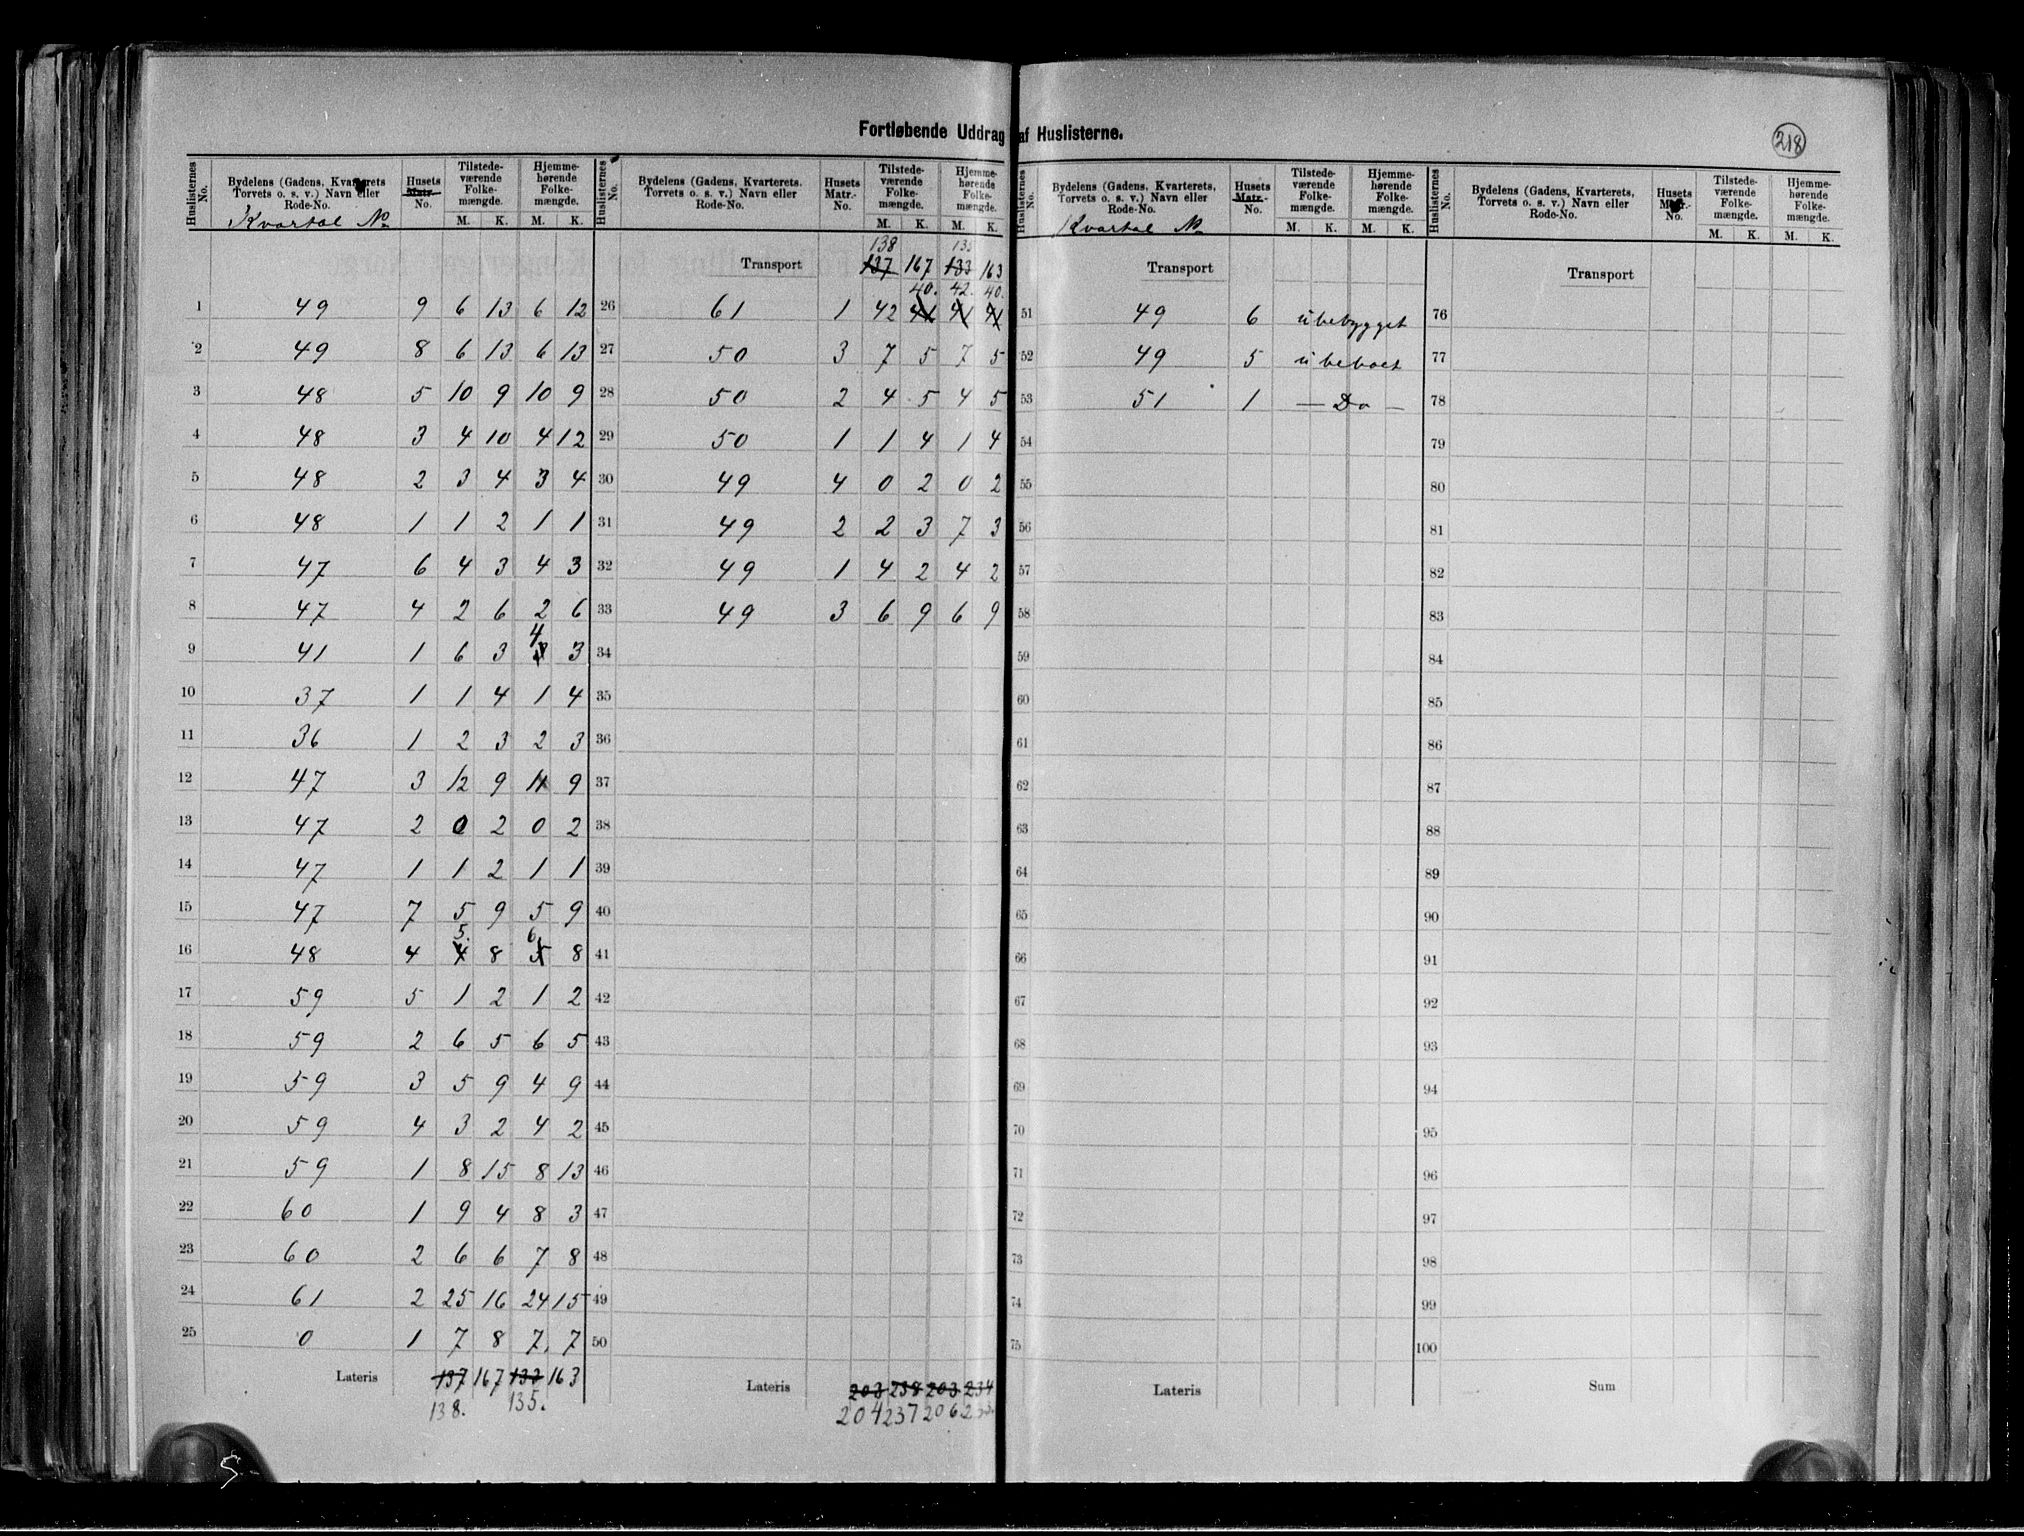 Fortløbende Uddrag af Huslisterne.
218
Huslisternes No. Bydelens (Gadens, Kvarterets Torvets o. s. v.) Navn eller Rode-No. Husets Matr.-No. Tilstedeværende Folkemængde. Hjemmehørende Folkemængde.
Kvartal No M. K. M. K.
1 49 9 6 13 6 12
2 49 8 6 13 6 13
3 48 5 10 9 10 9
4 48 3 4 10 4 12
5 48 2 3 4 3 4
6 48 1 1 2 1 1
7 47 6 4 3 4 3
8 47 4 2 6 2 6
9 41 1 6 3 4 3
10 37 1 1 4 1 4
11 36 1 2 3 2 3
12 47 3 12 9 11 9
13 47 2 0 2 0 2
14 47 1 1 2 1 1
15 47 7 5 9 5 9
5. 6
16 48 4 4 8 5 8
17 59 5 1 2 1 2
18 59 2 6 5 6 5
19 59 3 5 9 4 9
20 59 4 3 2 4 2
21 59 1 8 15 8 13
22 60 1 9 4 8 3
23 60 2 6 6 7 8
24 61 2 25 16 24 15
25 0 1 7 8 7 7
Lateris 137 167 133 163
138. 135.
Huslisternes No. Bydelens (Gadens, Kvarterets, Torvets o. s. v.) Navn eller Rode-No. Husets Matr.-No. Tilstedeværende Folkemængde. Hjemmehørende Folkemængde.
M. K. M. K.
138 135
Transport 137 167 133 163
40. 42. 40.
26 61 1 42 41 41 41
27 50 3 7 5 7 5
28 50 2 4 5 4 5
29 50 1 1 4 1 4
30 49 4 0 2 0 2
31 49 2 2 3 7 3
32 49 1 4 2 4 2
33 49 3 6 9 6 9
34
35
36
37
38
39
40
41
42
43
44
45
46
47
48
49
50
Lateris 203 238 203 234
204 237 206
Huslisternes No. Bydelens (Gadens, Kvarterets, Torvets o. s. v.) Navn eller Rode-No. Husets Matr.-No. Tilstedeværende Folkemængde. Hjemmehørende Folkemængde.
Kvartal No M. K. M. K.
Transport
51 49 6 ubebygget
52 49 5 ubeboet
53 51 1 — Do —
54
55
56
57
58
59
60
61
62
63
64
65
66
67
68
69
70
71
72
73
74
75
Lateris
Huslisternes No. Bydelens (Gadens, Kvarterets, Torvets o. s. v.) Navn eller Rode-No. Husets Matr.-No. Tilstedeværende Folkemængde. Hjemmehørende Folkemængde.
M. K. M. K.
Transport
76
77
78
79
80
81
82
83
84
85
86
87
88
89
90
91
92
93
94
95
96
97
98
99
100
Sum